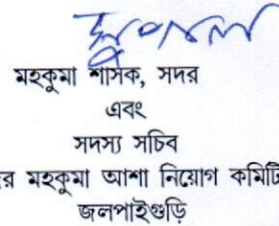 মহকুমা শাসক, সদর
এবং
সদস্য সচিব
র মহকুমা আশা নিয়োগ কমিটি
জলপাইগুড়ি